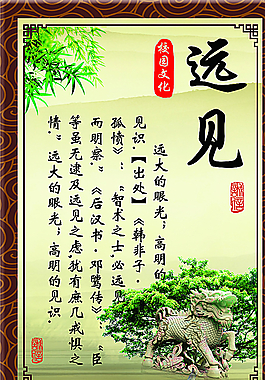 远见
校园文化
远大的眼光；高明的
见识．【出处】《韩非子．
孤愤》：“智术之士必远见
而明察．《后汉书．邓鹭传》：“臣
等虽无逮及远见之虑，犹有庶几戒惧之
情．”远大的眼光；高明的见识．